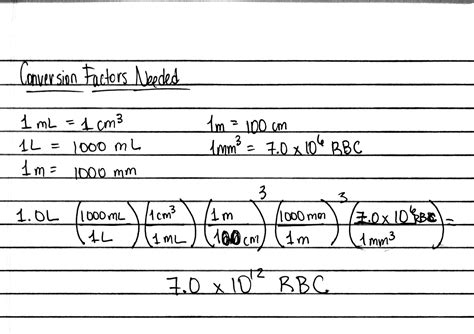 Conversion Factors Needed
1 mL = 1 cm³ 1m = 100 cm
1L = 1000 mL 1mm³ = 7.0 x 10⁶ RBC
1m = 1000 mm
1.0L (1000mL/1L)(1cm³/1mL)(1m/100cm)³(1000mm/1m)³(7.0 x 10⁶ RBC/1mm³) =
7.0 x 10¹² RBC